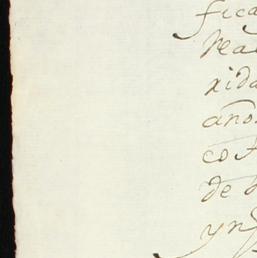 fica
rea
xida
año
cos
de
yn